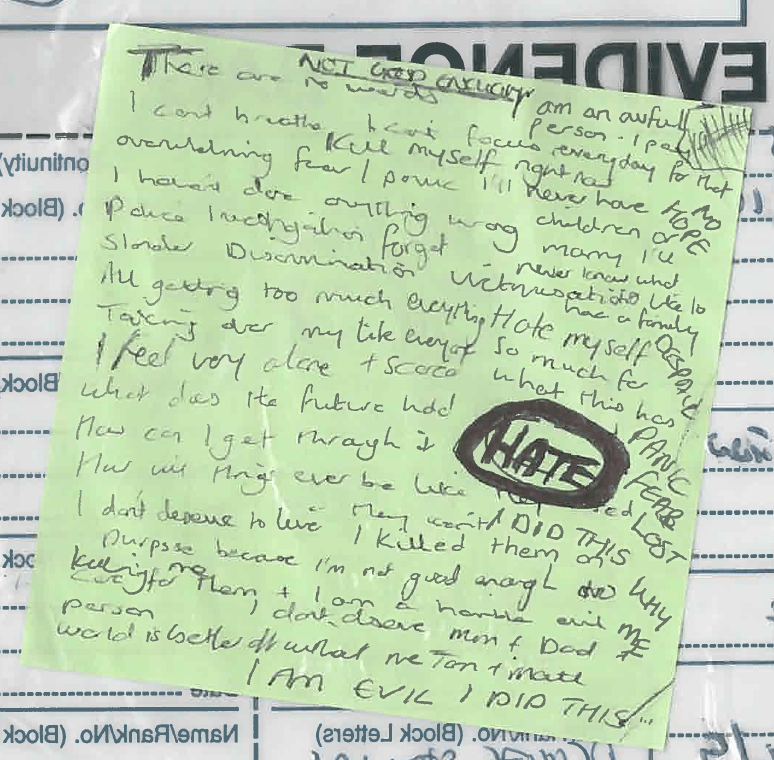 EVIDENCE
NOT GOOD ENOUGH
There are no words
I am an awful
person. I pay
everyday for that
I cant breathe I cant focus
Kill myself right now
overwhelming fear / panic I'll never have
children or
NO
HOPE
I haven't done anything wrong marry I'll
never know what
Police Investigation forget
its like to
have a family
Slander Discrimination Victimisation
All getting too much everything Hate myself
DESPAIR
Taking over my life everyday so much for
what this has
I feel very alone + scared
What does the future hold
PANIC
How can I get through it
HATE
FEAR
How will things ever be like
LOST
they won't I DID THIS
I don't deserve to live I killed them on
purpose because I'm not good enough
WHY
ME
killing me
care for them + I am a horrible evil
person I don't deserve mum + Dad
world is better off without me
I AM EVIL I DID THIS
Name/Rank/No. (Block
/No. (Block Letters)